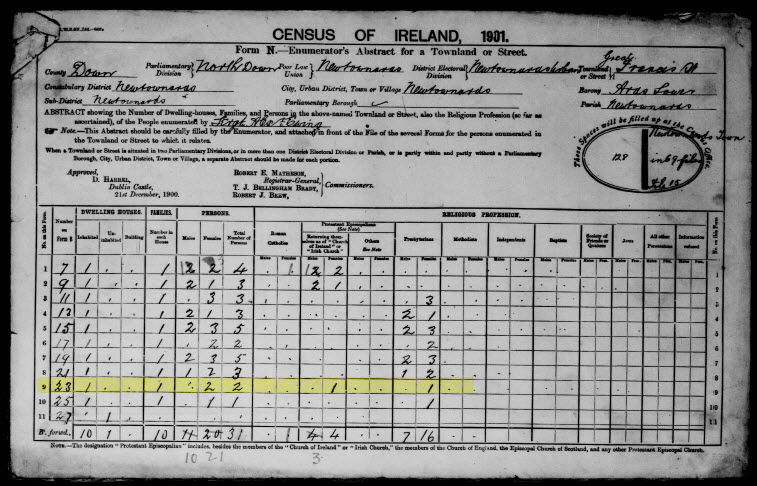 CENSUS OF IRELAND, 1901.
Form N.—Enumerator's Abstract for a Townland or Street.
County Down Parliamentary Division North Down Poor Law Union Newtownards District Electoral Division Newtownards Urban Townland or Street Great Francis St
Constabulary District Newtownards City, Urban District, Town or Village Newtownards Barony Ards Lower
Sub-District Newtownards Parliamentary Borough Parish Newtownards
ABSTRACT showing the Number of Dwelling-houses, Families, and Persons in the above-named Townland or Street, also the Religious Profession (so far as
ascertained), of the People enumerated by
Note.—This Abstract should be carefully filled by the Enumerator, and attached in front of the File of the several Forms for the persons enumerated in
the Townland or Street to which it relates.
When a Townland is situated in two Parliamentary Divisions, or in more than one District Electoral Division or Parish, or is partly within and partly without a Parliamentary
Borough, City, Urban District, Town or Village, a separate Abstract should be made for each portion.
These Spaces will be filled up at the Census Office.
Newtownards Town
128
Approved,
D. HARREL,
Dublin Castle,
21st December, 1900.
ROBERT E. MATHESON,
Registrar-General,
T. J. BELLINGHAM BRADY,
ROBERT J. BREW,
Commissioners.
No. on this Form Number on Form B DWELLING HOUSES. FAMILIES. PERSONS. RELIGIOUS PROFESSION. No. on this Form
Inhabited Un-inhabited Building Number in each House Males Females Total Number of Persons Roman Catholics Protestant Episcopalians (See Note) Returning themselves as of "Church of Ireland" or "Irish Church" Others See Note Presbyterians Methodists Independents Baptists Society of Friends or Quakers Jews All other Persuasions Information refused
Males Females Males Females Males Females Males Females Males Females Males Females Males Females Males Fem. Males Fem. Males Fem. Males Fem.
1 7 1 1 2 2 4 1 2 2 1
2 9 1 1 2 1 3 2 1 2
3 11 1 1 3 3 3 3
4 13 1 1 2 1 3 2 1 4
5 15 1 1 2 3 5 2 3 5
6 17 1 1 2 2 2 6
7 19 1 1 2 3 5 2 3 7
8 21 1 1 1 2 3 1 2 8
9 23 1 1 2 2 1 1 9
10 25 1 1 1 1 1 10
11 27 1 11
B' forwd. 10 1 10 11 20 31 1 4 4 7 16
NOTE.—The designation "Protestant Episcopalian" includes, besides the members of the "Church of Ireland" or "Irish Church," the members of the Church of England, the Episcopal Church of Scotland, and any other Protestant Episcopal Church.
10 21 3